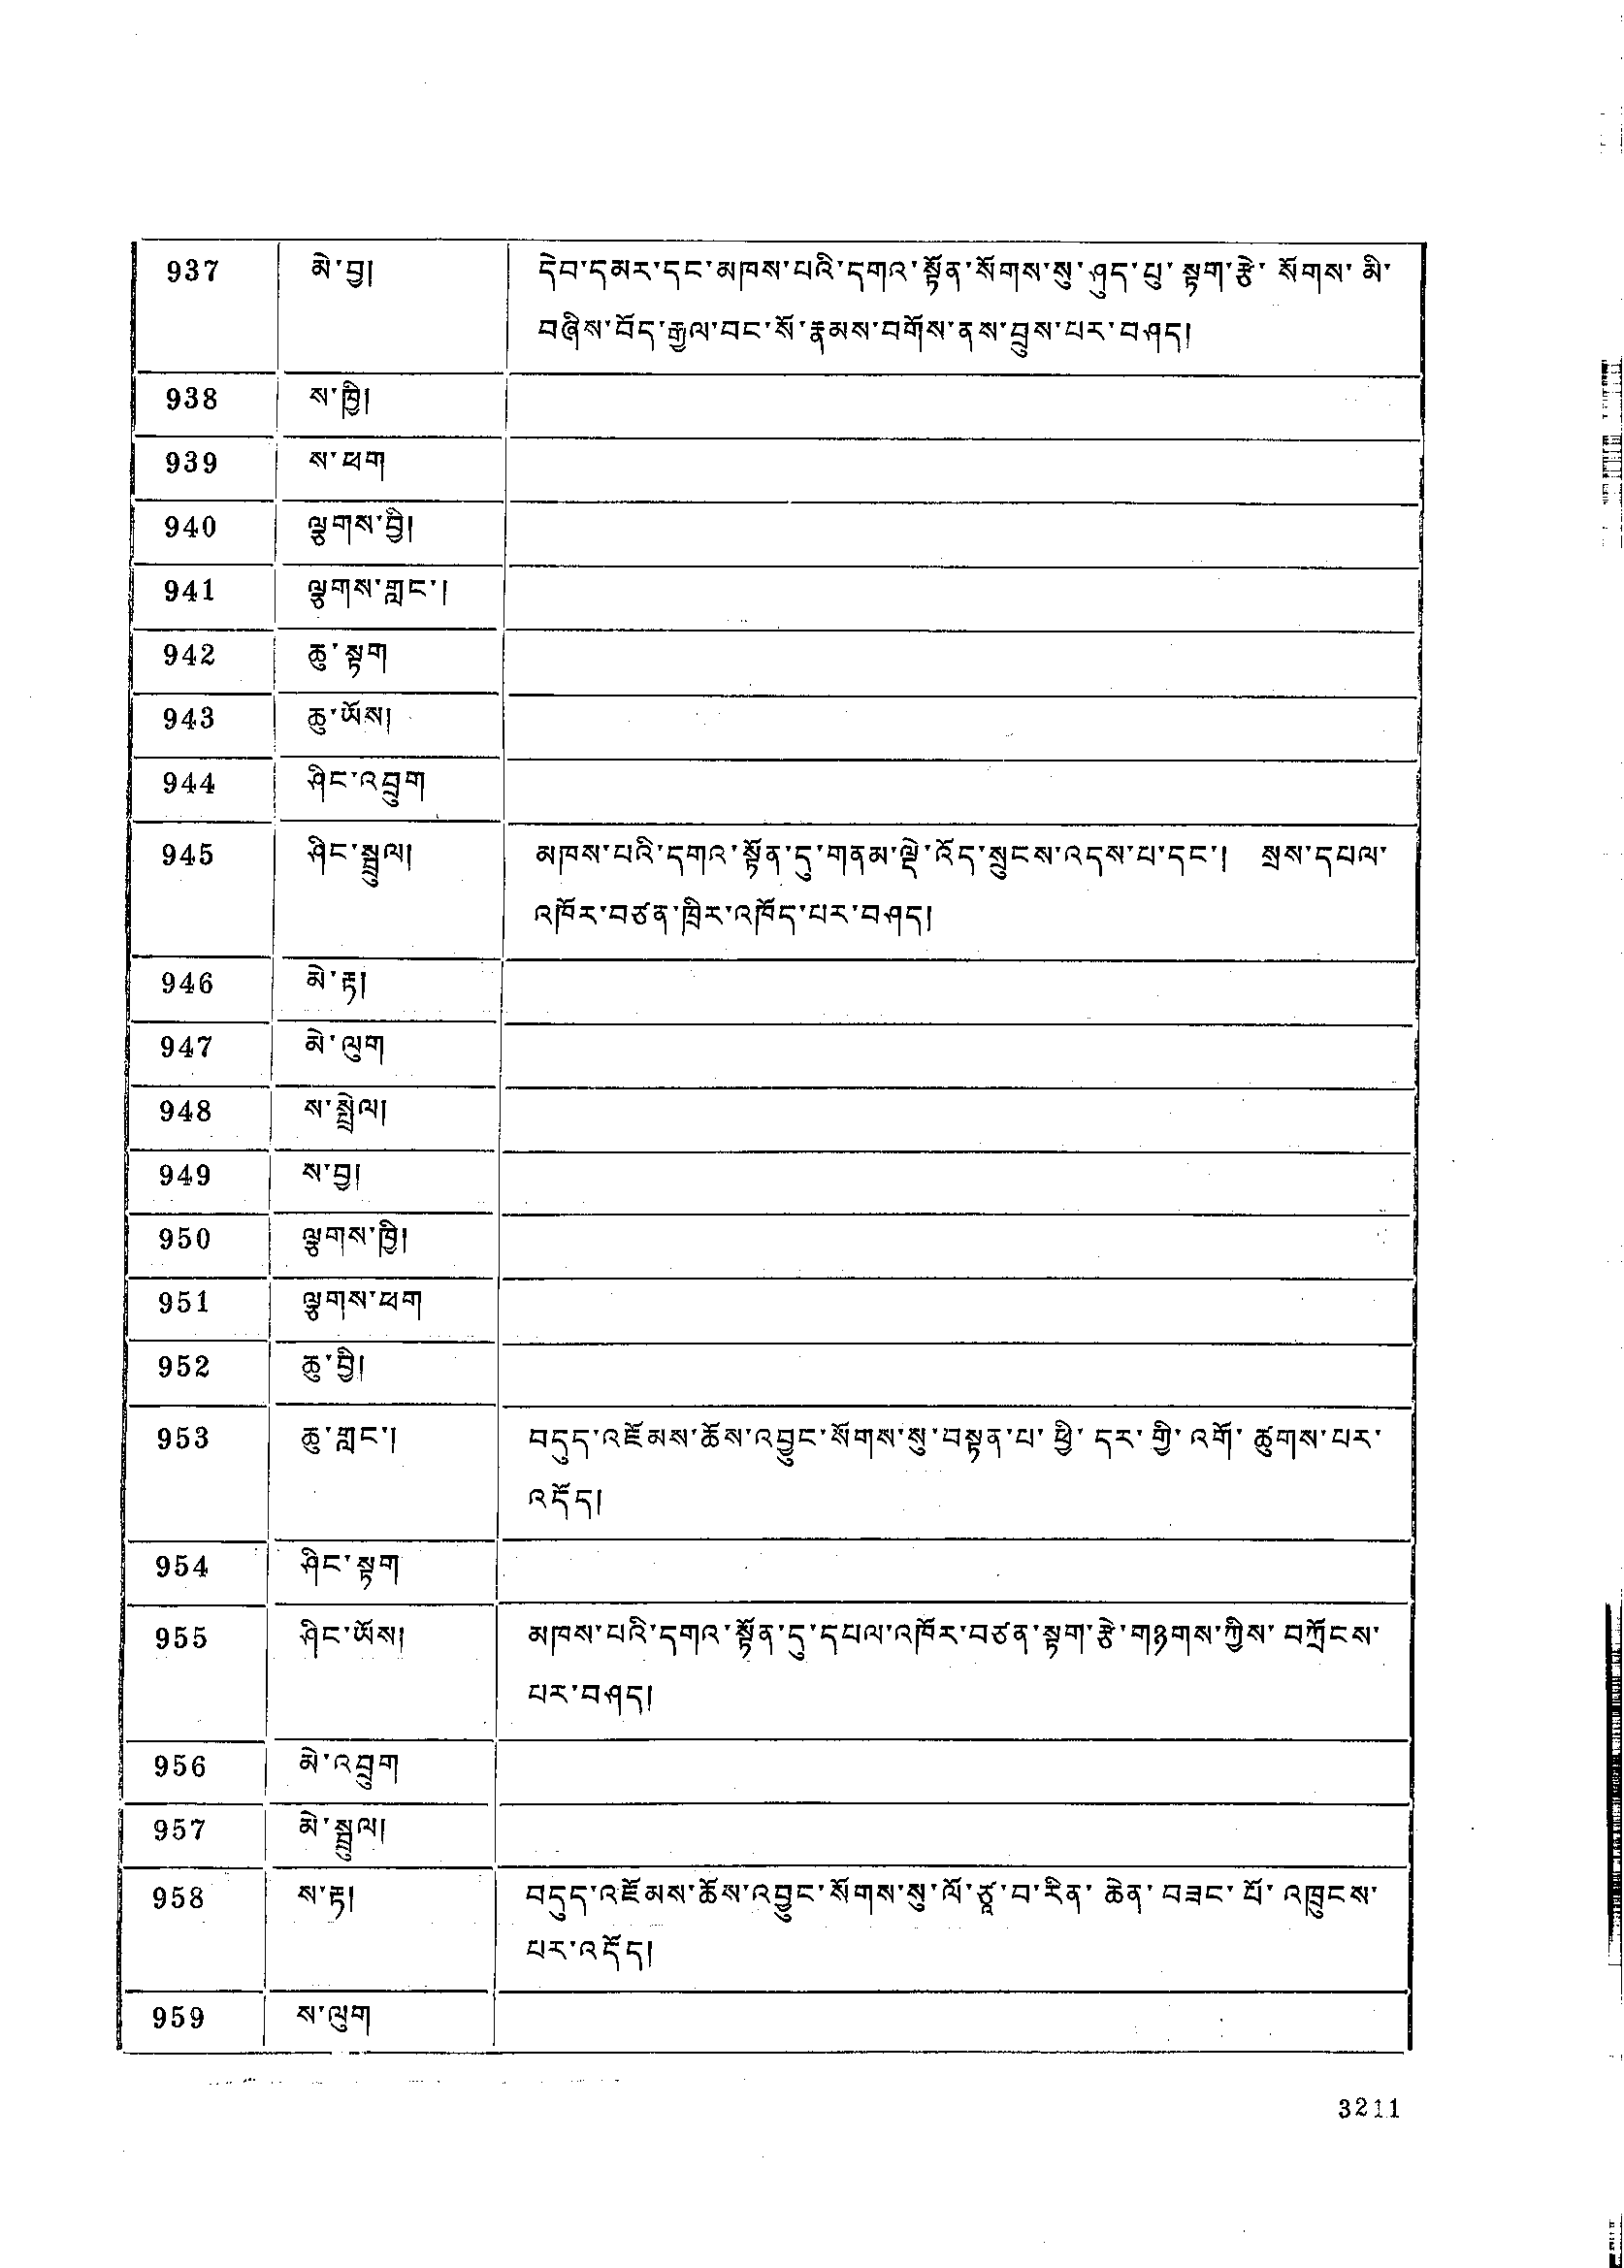 937 མེ་བྱ། དེབ་དམར་དང་མཁས་པའི་དགའ་སྟོན་སོགས་སུ་ཤུད་པུ་སྟག་རྩེ་སོགས་མི་
བཞིས་བོད་རྒྱལ་བང་སོ་རྣམས་བགོས་ནས་བྲུས་པར་བཤད།
938 ས་ཁྱི།
939 ས་ཕག
940 ལྕགས་བྱི།
941 ལྕགས་གླང་།
942 ཆུ་སྟག
943 ཆུ་ཡོས།
944 ཤིང་འབྲུག
945 ཤིང་སྦྲུལ། མཁས་པའི་དགའ་སྟོན་དུ་གནམ་ལྡེ་འོད་སྲུངས་འདས་པ་དང་། སྲས་དཔལ་
འཁོར་བཙན་ཁྲིར་འཁོད་པར་བཤད།
946 མེ་རྟ།
947 མེ་ལུག
948 ས་སྤྲེལ།
949 ས་བྱ།
950 ལྕགས་ཁྱི།
951 ལྕགས་ཕག
952 ཆུ་བྱི།
953 ཆུ་གླང་། བདུད་འཇོམས་ཆོས་འབྱུང་སོགས་སུ་བསྟན་པ་ཕྱི་དར་གྱི་འགོ་ཚུགས་པར་
འདོད།
954 ཤིང་སྟག
955 ཤིང་ཡོས། མཁས་པའི་དགའ་སྟོན་དུ་དཔལ་འཁོར་བཙན་སྟག་རྩེ་གཉགས་ཀྱིས་བཀྲོངས་
པར་བཤད།
956 མེ་འབྲུག
957 མེ་སྦྲུལ།
958 ས་རྟ། བདུད་འཇོམས་ཆོས་འབྱུང་སོགས་སུ་ལོ་ཙཱ་བ་རིན་ཆེན་བཟང་པོ་འཁྲུངས་
པར་འདོད།
959 ས་ལུག
3211